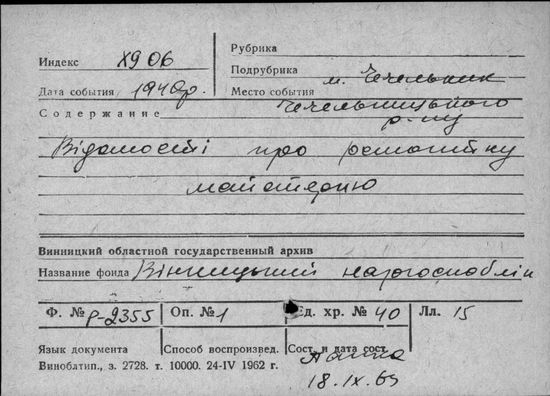 Индекс Х9 06
Рубрика
Подрубрика м. Чечельник
Дата события 1940р.
Место события Чечельницького
Содержание р-ну
Відомості про
майстерню
Винницкий областной государственный архив
Название фонда Вінницький
Ф. № Р-2355 Оп. № 1 Ед. хр. № 40 Лл. 15
Язык документа Способ воспроизвед. Сост. и дата сост.
Виноблтип., з. 2728. т. 10000. 24-IV 1962 г.
18.IX.69